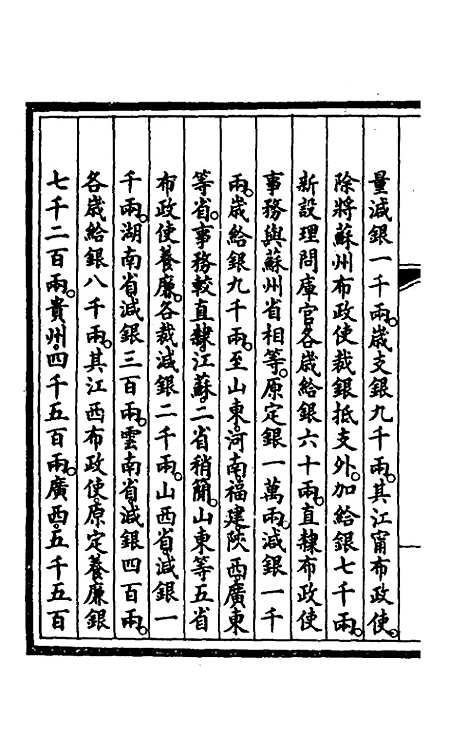 量減銀一千兩。歲支銀九千兩。其江甯布政使。
除將蘇州布政使裁銀抵支外。加給銀七千兩。
新設理問庫官各歲給銀六十兩。直隸布政使
事務與蘇州省相等。原定銀一萬兩。減銀一千
兩。歲給銀九千兩。至山東、河南、福建、陝西、廣東
等省。事務較直隸、江蘇二省稍簡。山東等五省
布政使養廉。各裁減銀二千兩。山西省、減銀一
千兩。湖南省減銀三百兩。雲南省、減銀四百兩。
各歲給銀八千兩。其江西布政使、原定養廉銀
七千二百兩。貴州、四千五百兩。廣西、五千五百